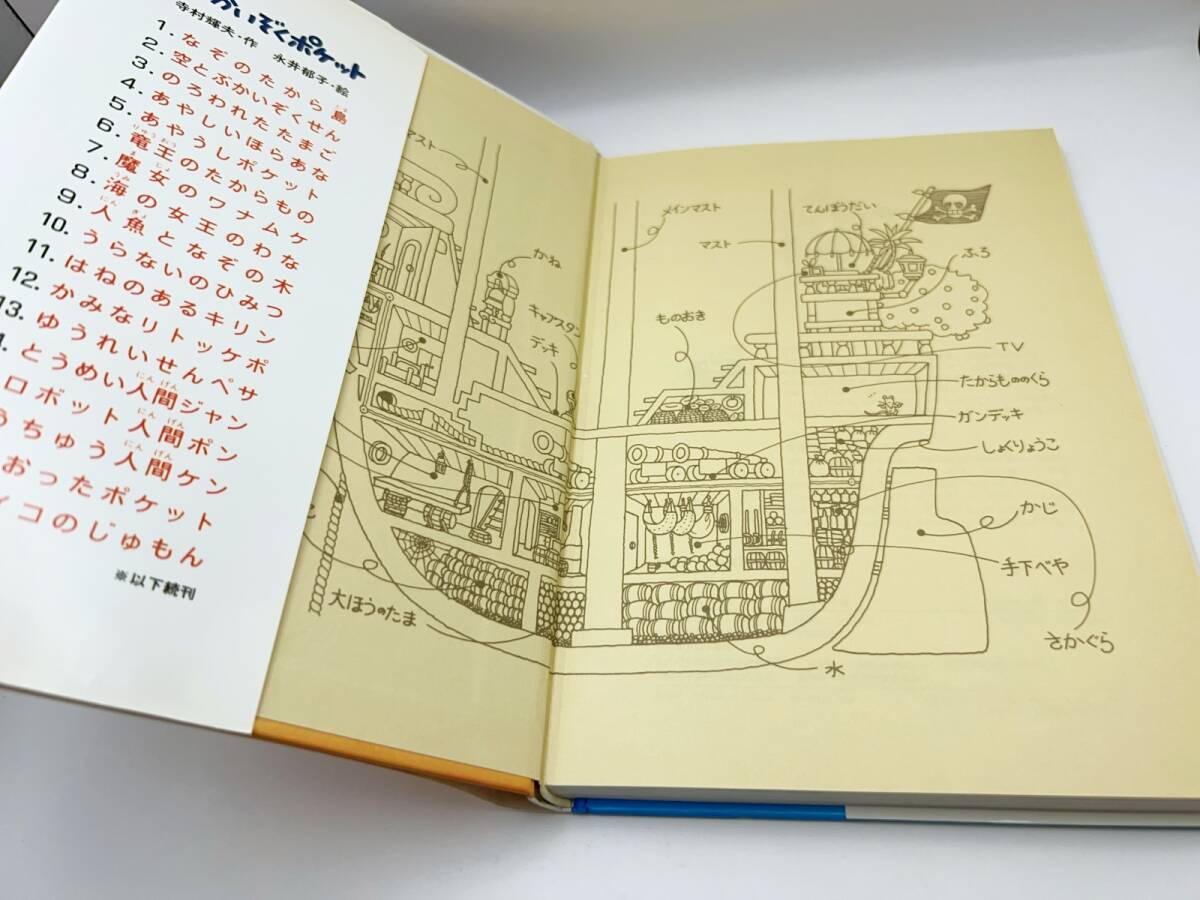 かいぞくポケット
寺村輝夫・作 永井郁子・絵
1. なぞのたから島
2. 空とぶかいぞくせん
3. のろわれたたまご
4. あやしいほらあな
5. あやうしポケット
6. 竜王のたからもの
7. 魔女のワナムケ
8. 海の女王のわな
9. 人魚となぞの木
10. うらないのひみつ
11. はねのあるキリン
12. かみなりトッケポ
13. ゆうれいせんペサ
4. とうめい人間ジャン
ロボット人間ポン
うちゅう人間ケン
おったポケット
イコのじゅもん
※以下続刊
マスト
かね
キャプスタン
デッキ
大ほうのたま
メインマスト
マスト
てんぼうだい
ふろ
ものおき
TV
たからもののくら
ガンデッキ
しょくりょうこ
かじ
手下べや
さかぐら
水